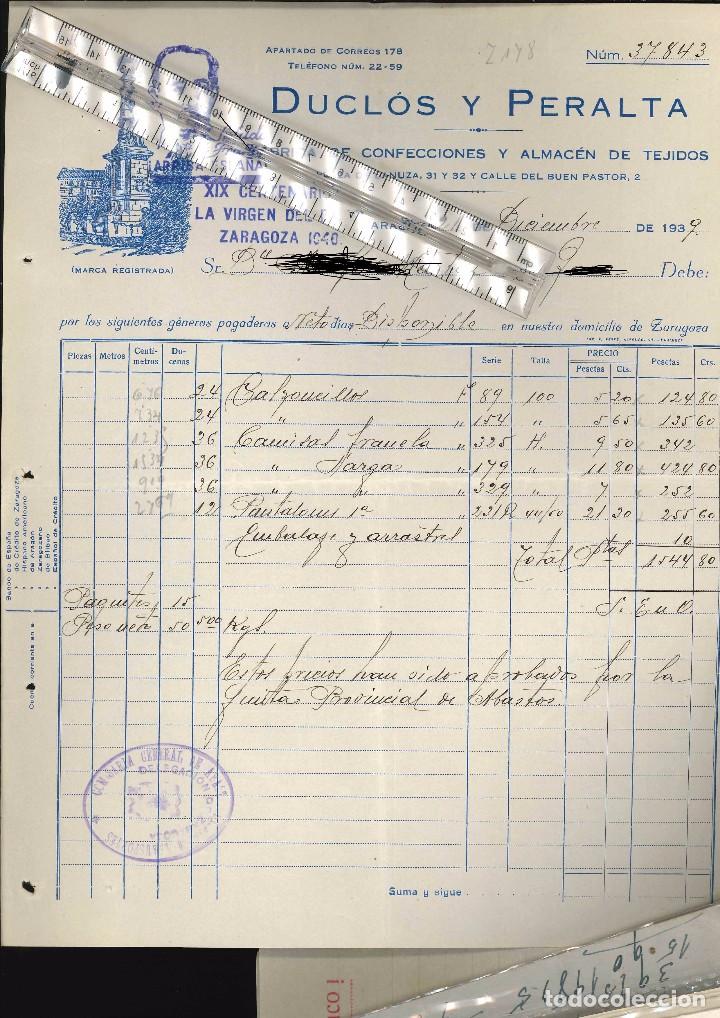 APARTADO DE CORREOS 178
TELÉFONO NÚM. 22-59
Z 178
Núm. 37843
DUCLÓS Y PERALTA
DE CONFECCIONES Y ALMACÉN DE TEJIDOS
31 Y 32 Y CALLE DEL BUEN PASTOR, 2
ARRIBA ESPAÑA
XIX CENTENARIO
LA VIRGEN DEL
ZARAGOZA 1940
Diciembre DE 1939
(MARCA REGISTRADA)
Sr. Debe:
por los siguientes géneros pagaderos a Neto días Disponible en nuestro domicilio de Zaragoza
Piezas Metros Centímetros Docenas Serie Talla PRECIO Pesetas Cts. Pesetas Cts.
24 Calzoncillos F 89 100 5 20 124 80
24 " " 154 " 5 65 135 60
36 Camisas franela " 325 H. 9 50 342
36 " Larga " 179 " 11 80 424 80
36 " " " 329 " 7 252
12 Pantalones 1ª 221 44/50 21 30 255 60
Embalaje y arrastres 10
Total Ptas 1544 80
Paquetes 15 S. E. u O.
Peso neto 50 500 Kgs.
Estos precios han sido aprobados por la
Junta Provincial de Abastos.
Banco de España
de Crédito de Zaragoza
Hispano Americano
de Aragón
Zaragozano
de Bilbao
Español de Crédito
Cuenta corriente en el
COMISARIA GENERAL DE
DELEGACION
Suma y sigue
todocoleccion